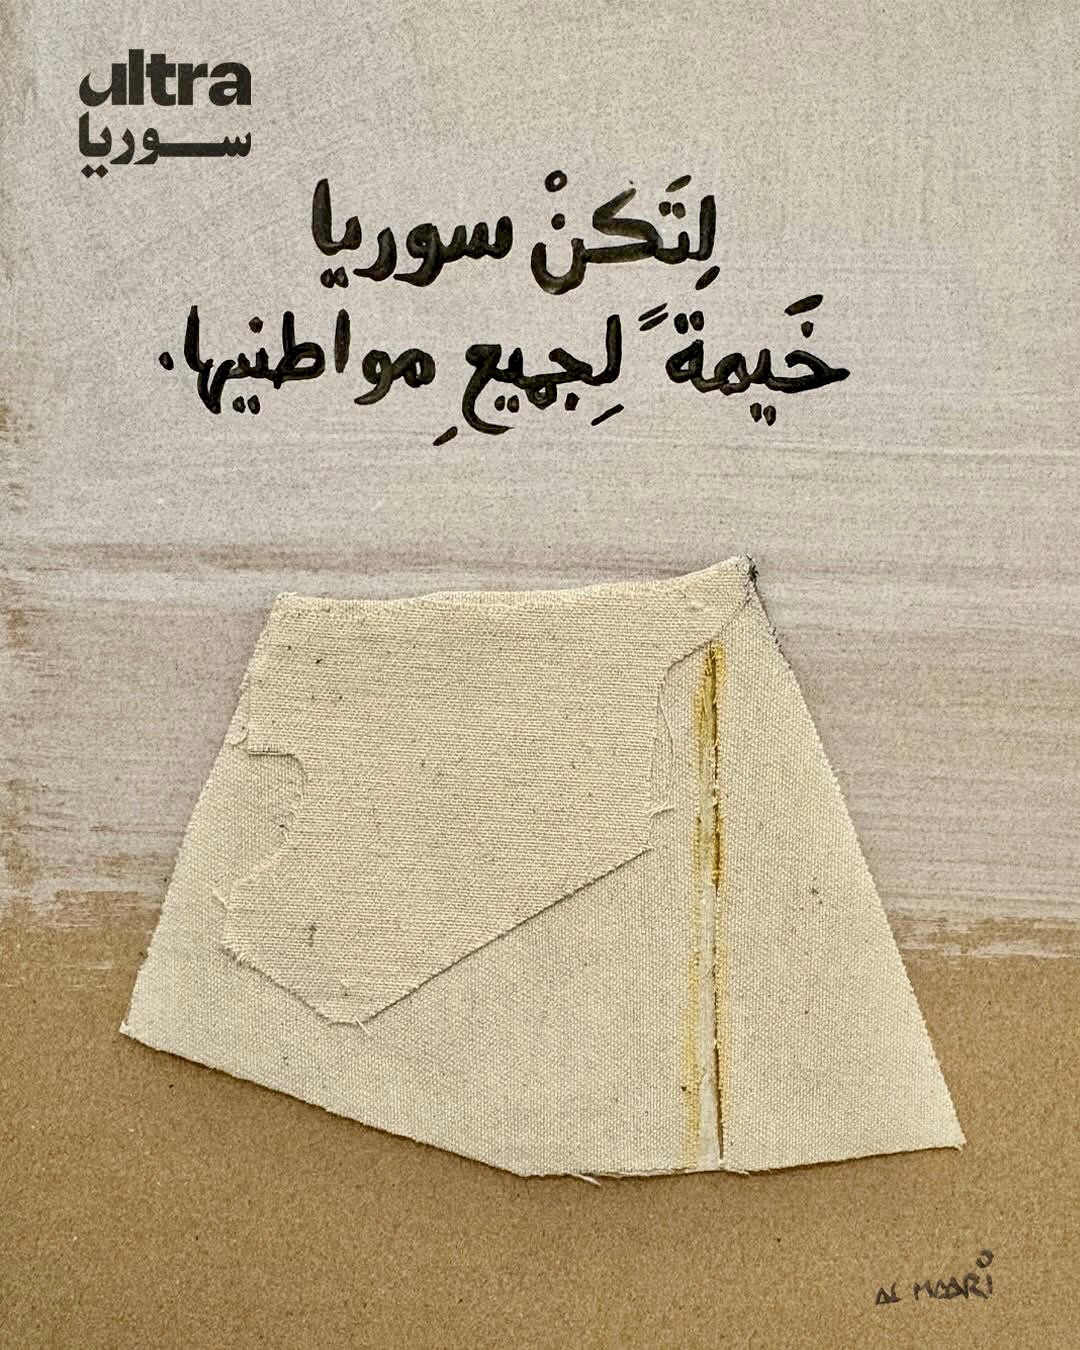 ultra
سوريا
لِتَكنْ سوريا
خَيمةً لِجميعِ مواطنيها.
AL MAARI